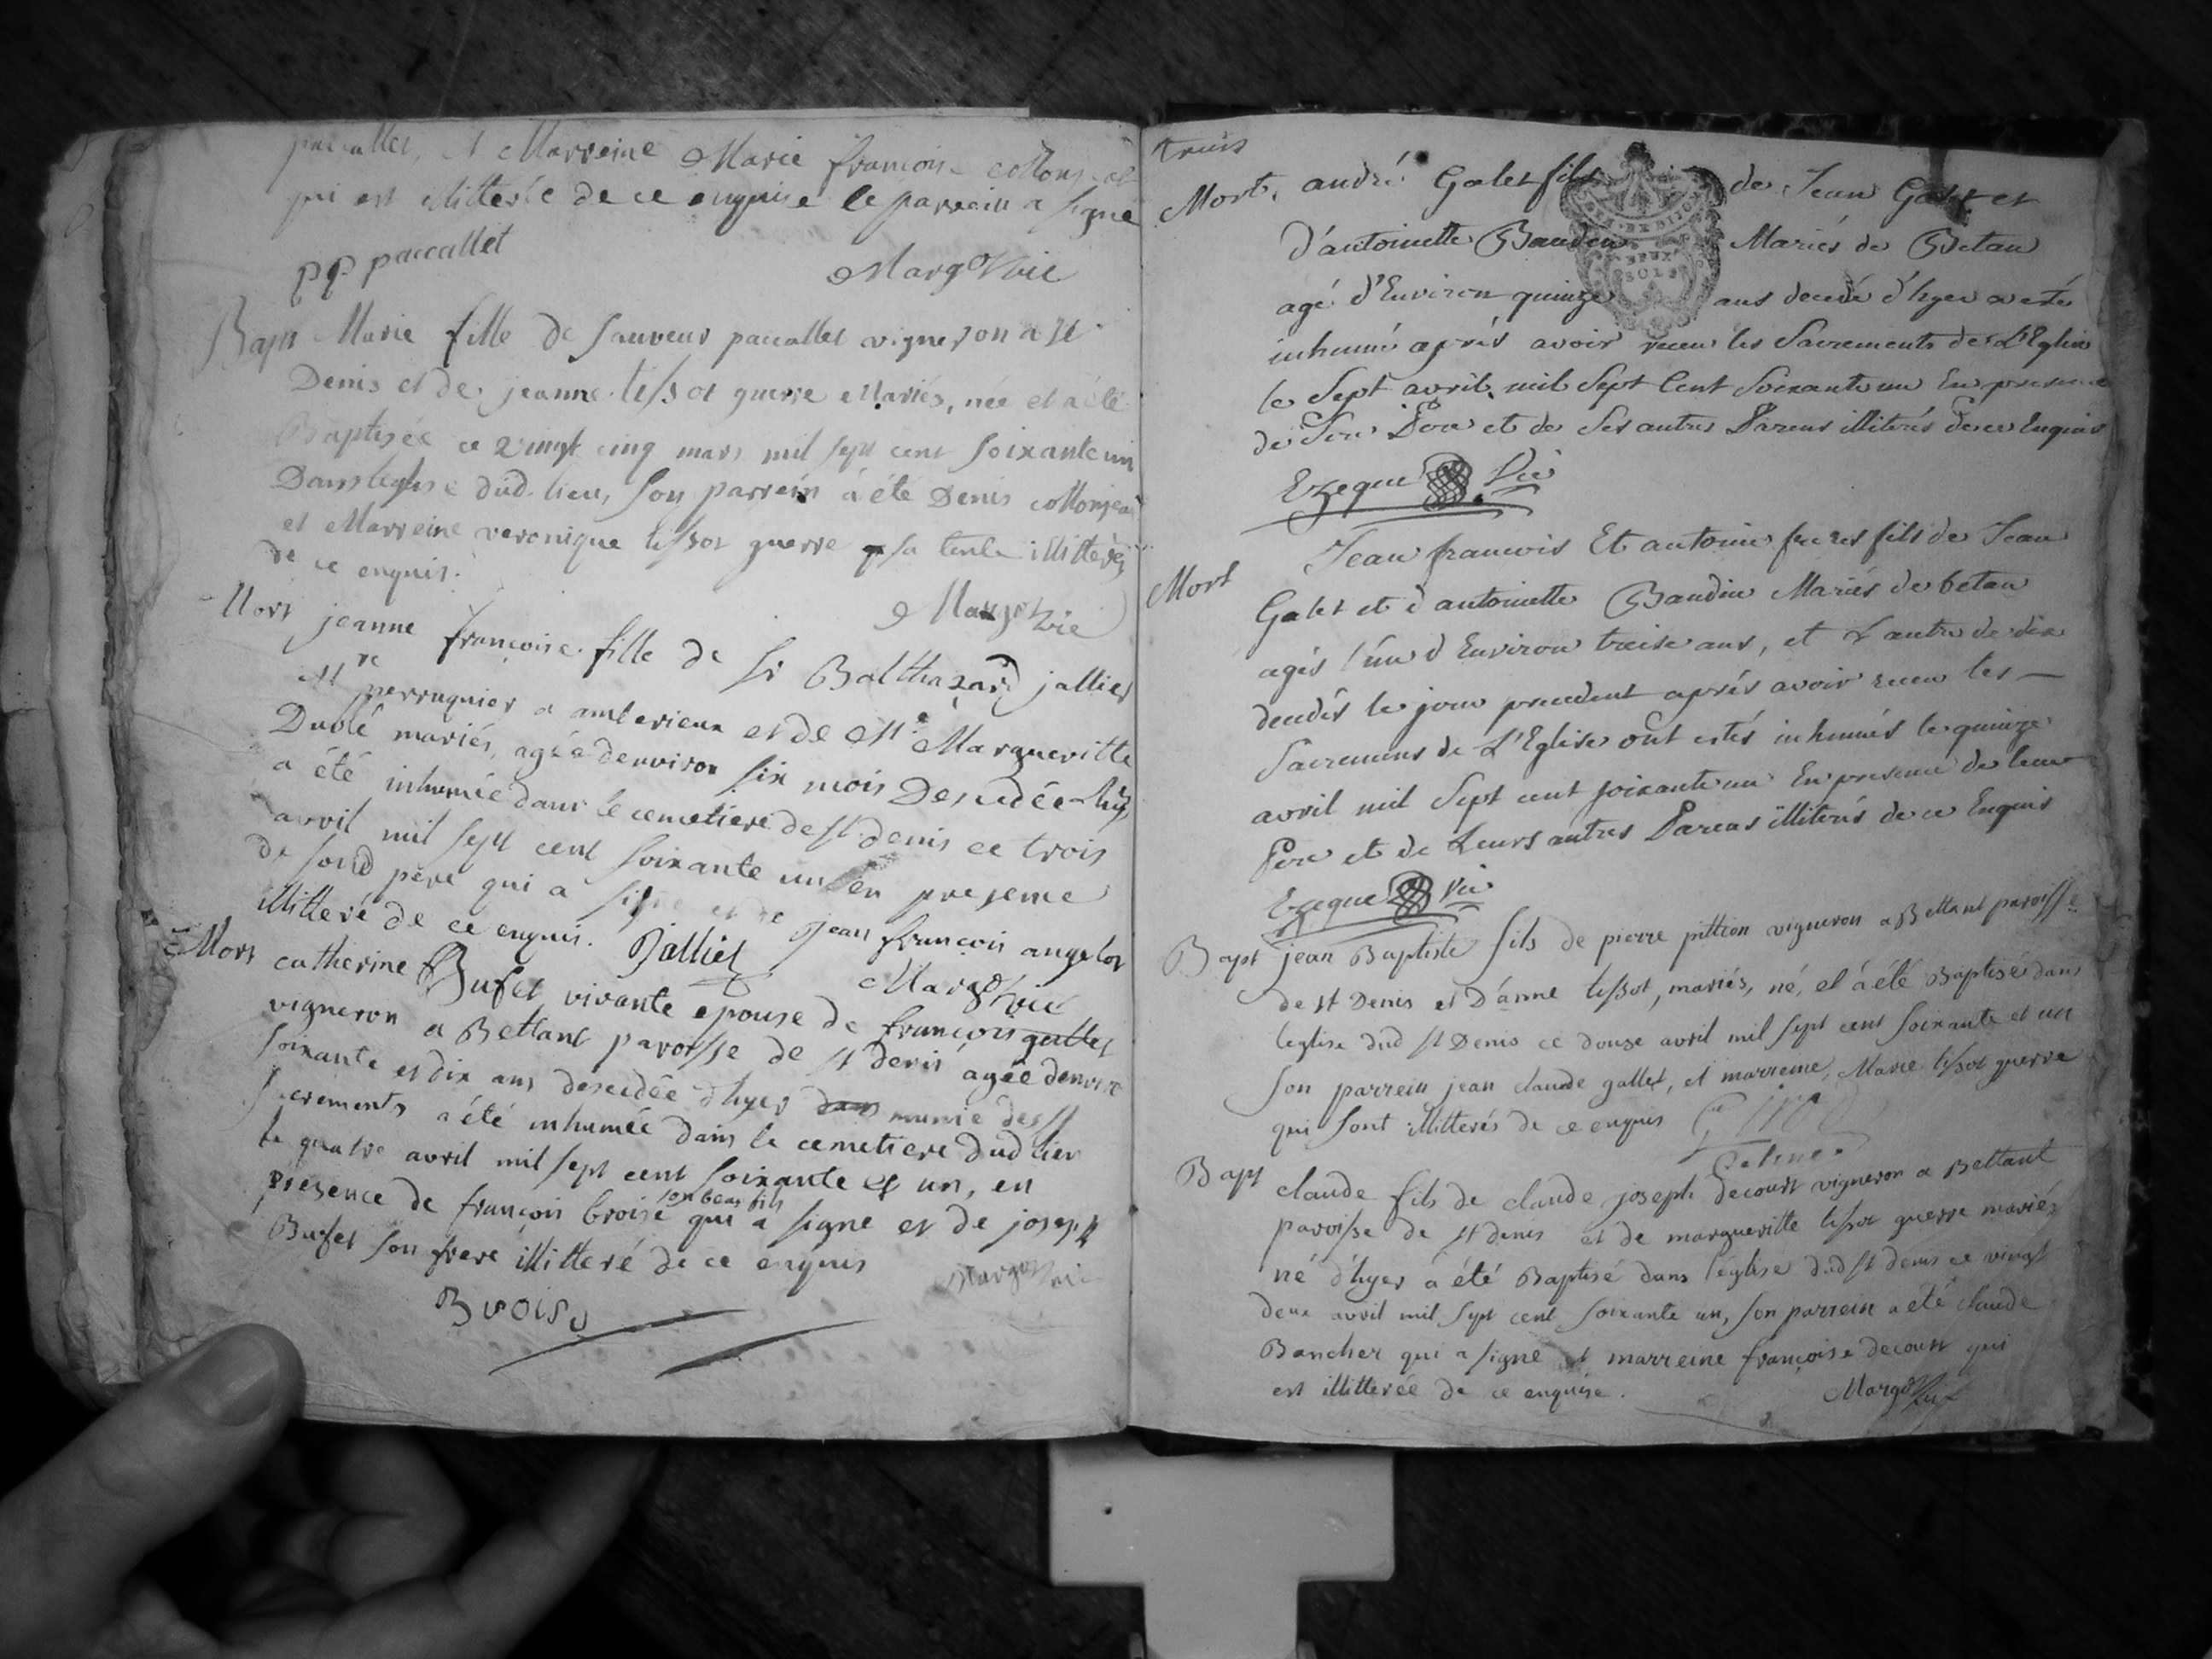 paccallet, et Marreine Marie françoise
qui est illitterée de ce enquise le parrein a signé
pp paccallet
Margot vic
Bapt Marie fille de sauveur paccallet vigneron a st
Denis et de jeanne tissot guerre Mariés, née et a été
Baptisée ce vingt cinq mars mil sept cent soixante un
Dans leglise dud. lieu, son parrein a été Denis
et Marreine veronique tissot guerre sa tente illitterés
de ce enquis.
Margot vic
Mort jeanne françoise fille de sr Balthazard jallier
Mre perruquier a amberieux et de Mle Margueritte
Dublé mariés, agée denviron six mois Descedée hïer
a été inhumée dans le cemetiere de st denis ce trois
avril mil sept cent soixante un en presence
de sond père qui a signé et de jean françois angelot
illitteré de ce enquis. Jalliet
Margot vic
Mort catherine Bufet vivante epouse de françois gallet
vigneron a Bettant paroisse de st denis agée denviron
soixante et dix ans descedée d'hyer munie des ss
sacrements a été inhumée dans le cemetiere dud lieu
le quatre avril mil sept cent soixante et un, en
presence de françois broise son beau fils qui a signe et de joseph
Bufet son frere illitteré de ce enquis
Margot vic
Broise
trois
Mort. andré Galet fils de Jean Galet et
d'antoinette Baudin Mariés de Betan
agé d'Environ quinze ans decedé d'hyer a esté
inhumé aprés avoir receu les Sacrements de L'Eglise
le Sept avril mil Sept Cent Soixante un En presence
de Son Pere et de Ses autres Parens illiterés de ce Enquis
Ezeque Vic
Mort Jean francois Et antoine freres fils de Jean
Galet et d'antoinette Baudin Mariés de betan
agés l'un d'Environ treise ans, et L'autre de dix
decedés le jour precedent aprés avoir receu les
Sacremens de L'Eglise ont estés inhumés le quinze
avril mil Sept cent soixante un En presence de leur
Pere et de Leurs autres Parens illiterés de ce Enquis
Ezeque Vic
Bapt jean Baptiste fils de pierre pittion vigneron a Bettant paroisse
de st Denis et D'anne tissot, mariés, né, et a été Baptisé dans
leglise dud st Denis ce douze avril mil sept cent soixante et un
son parrein jean claude gallet, et marreine, Marie tissot guerre
qui sont illitterés de ce enquis
Bapt claude fils de claude joseph decourt vigneron a Bettant
paroisse de st denis et de margueritte tissot guerre mariés
né d'hyer a été Baptisé dans l'église dud st denis ce vingt
deux avril mil sept cent soixante un, son parrein a été claude
Bancher qui a signé et marreine françoise decourt qui
est illitterée de ce enquise.
Margot Vic